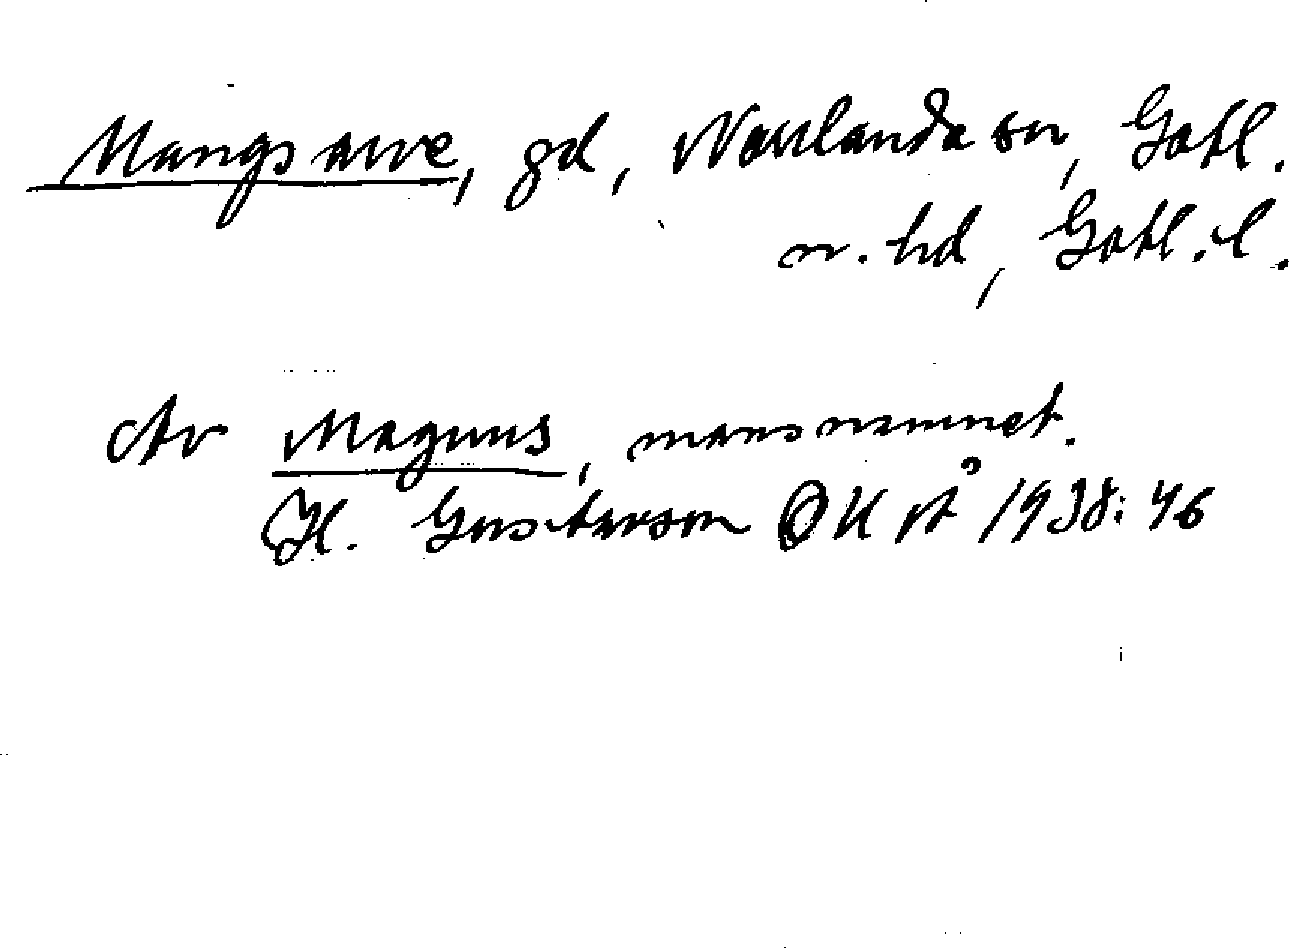 Mangsarve, gd, Norrlanda sn, Gotl.
n. hd, Gotl. l.
Av Magnus, mansnamnet.
H. Gustavson OK på 1938: 46